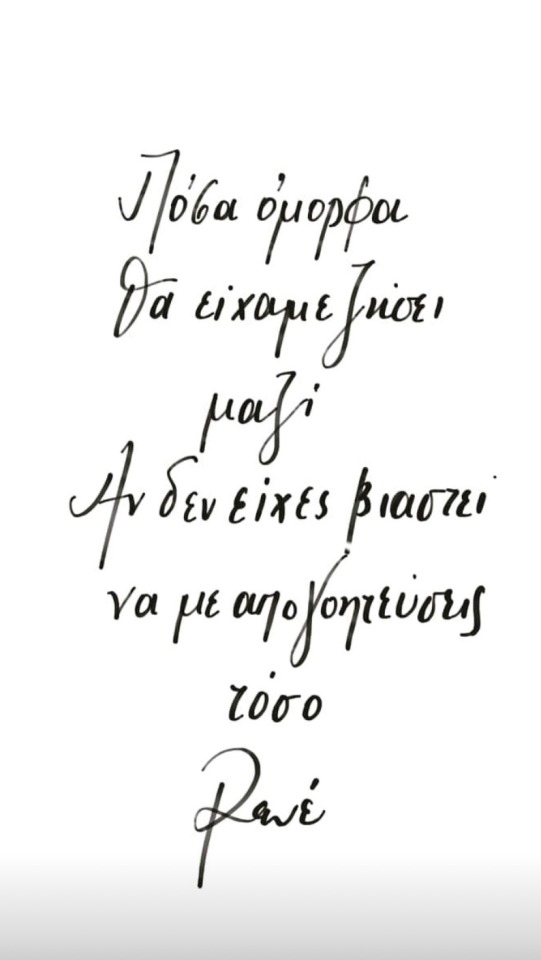 Πόσα όμορφα
θα είχαμε ζήσει
μαζί
Αν δεν είχες βιαστεί
να με απογοητεύσεις
τόσο
Ρενέ